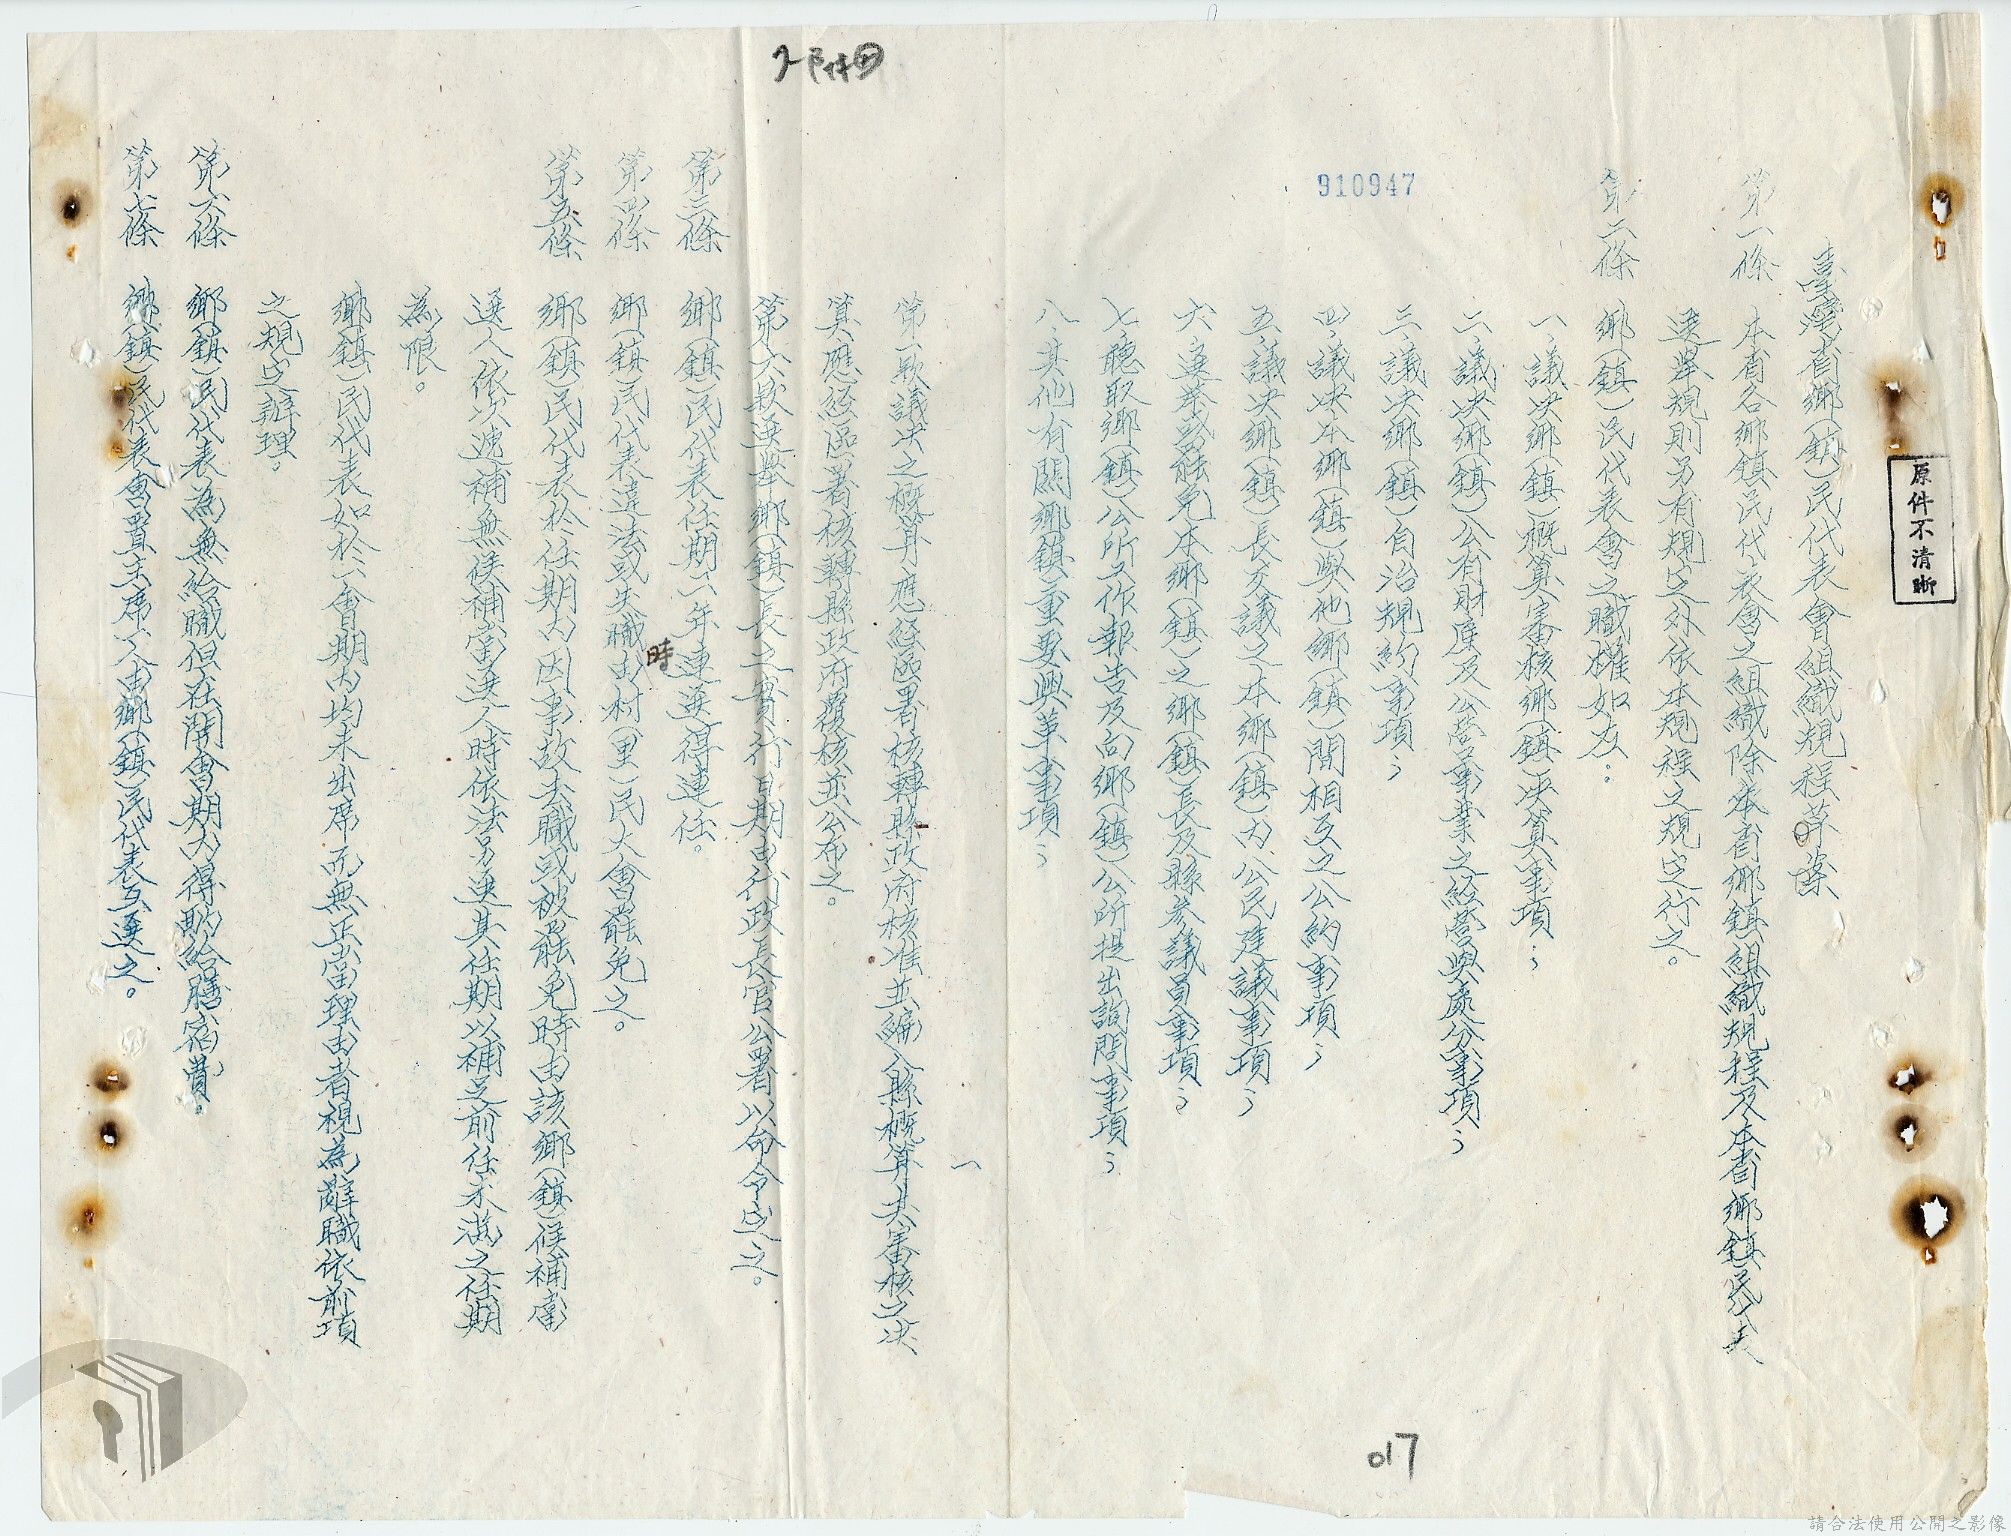 原件不清晰
臺灣省鄉(鎮)民代表會組織規程草案
第一條 本省各鄉鎮民代表會之組織除本省鄉鎮組織規程及本省鄉鎮民代表
選舉規則另有規定外依本規程之規定行之。
第二條 鄉(鎮)民代表會之職權如左。
一、議決鄉(鎮)概算審核鄉(鎮)決算事項；
二、議決鄉(鎮)公有財產及公營事業之經營與處分事項；
三、議決鄉(鎮)自治規約事項；
四、議決本鄉(鎮)與他鄉(鎮)間相互之公約事項；
五、議決鄉(鎮)長交議之本鄉(鎮)內公民建議事項；
六、選舉或罷免本鄉(鎮)之鄉(鎮)長及縣參議員事項；
七、聽取鄉(鎮)公所工作報告及向鄉(鎮)公所提出詢問事項；
八、其他有關鄉(鎮)重要興革事項；
910947
017
一
第一款議決之概算應經區署核轉縣政府核准並編入縣概算其審核之決
算應經區署核轉縣政府覆核並公布之。
2-附件四
第六款選舉鄉(鎮)長之實行日期由行政長官公署以命令定之。
第三條 鄉(鎮)民代表任期二年連選得連任。
第四條 鄉(鎮)民代表違法或失職時由村(里)民大會罷免之。
第五條 鄉(鎮)民代表於任期內因事故去職或被罷免時由該鄉(鎮)候補當
選人依次遞補無候補當選人時依法另選其任期以補足前任未滿之任期
為限。
鄉(鎮)民代表如於一會期內均未出席而無正當理由者視為辭職依前項
之規定辦理。
第六條 鄉(鎮)民代表為無給職但在開會期內得酌給膳宿費。
第七條 鄉(鎮)民代表會置主席一人由鄉(鎮)民代表互選之。
請合法使用公開之影像